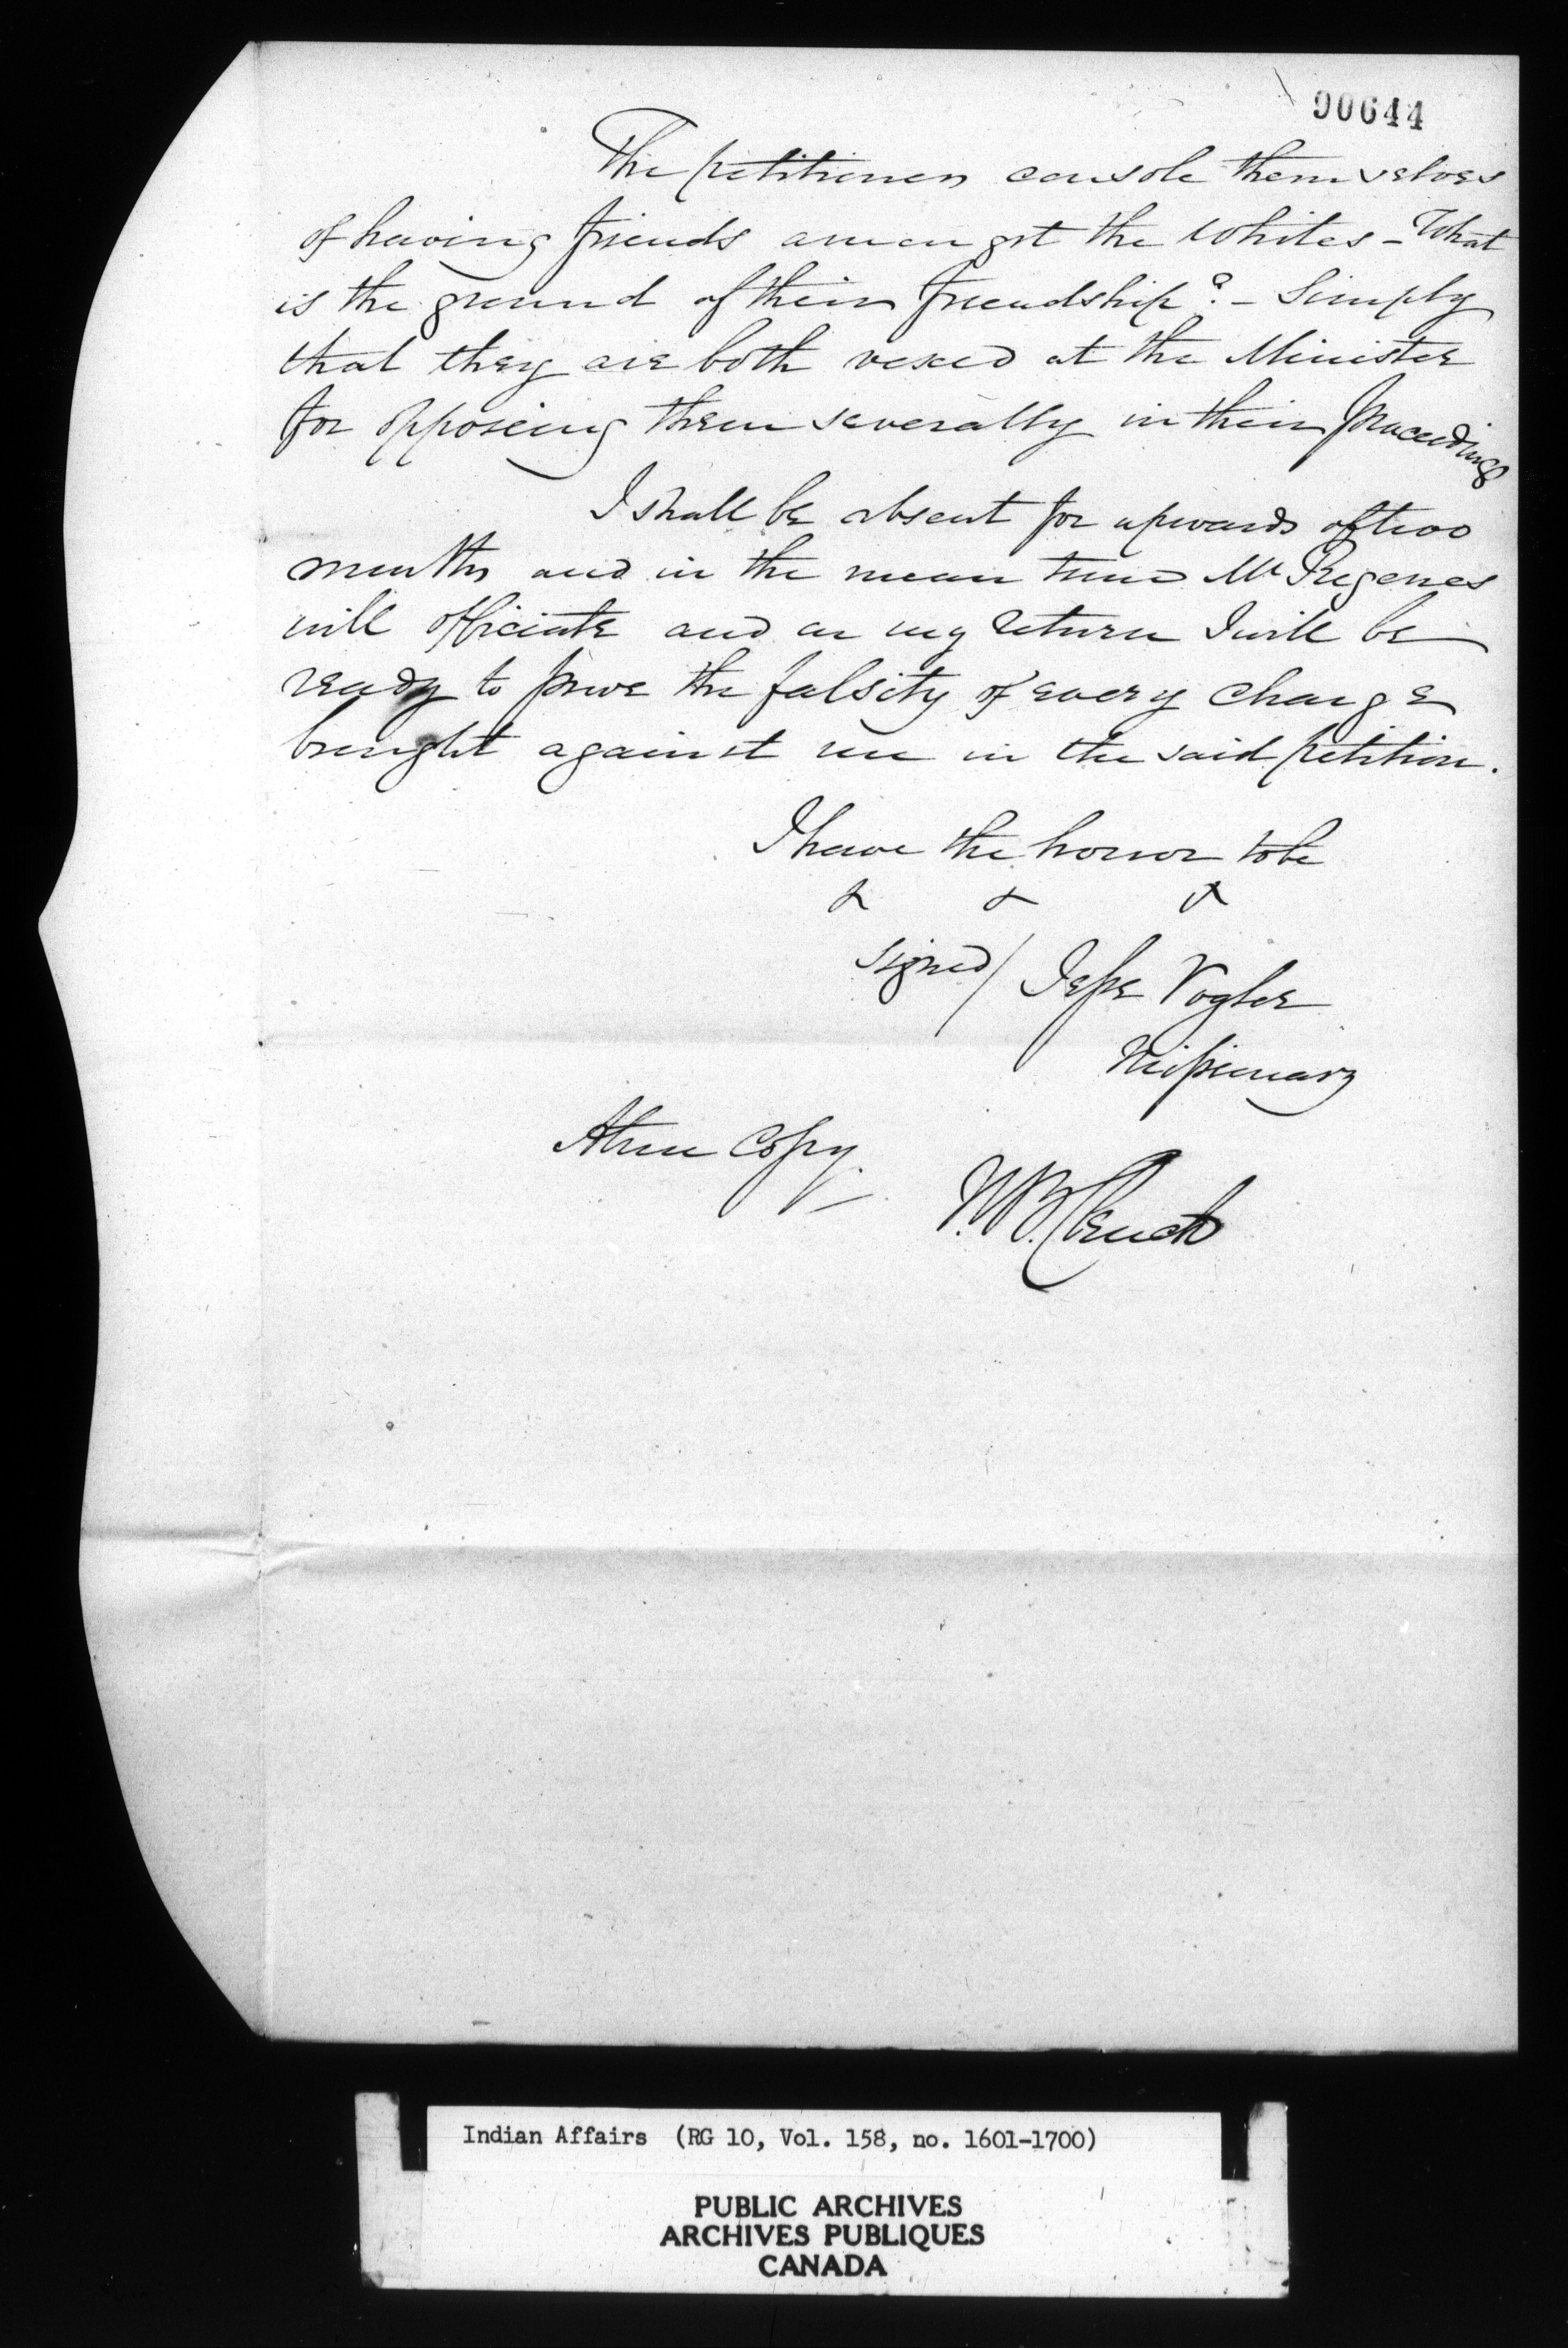 90644
The petitioners console themselves
of having friends amongst the Whites - What
is the ground of their friendship? - Simply
that they are both vexed at the Minister
for opposeing them severally in their proceedings
I shall be absent for upwards of two
months and in the mean time Mr Regenes
will officiate and on my return I will be
ready to prove the falsity of every charge
brought against me in the said petition.
I have the honor to be
& & &
signed/ Jesse Vogler
Missionary
A true Copy.
J. B. Clench
Indian Affairs (RG 10, Vol. 158, no. 1601-1700)
PUBLIC ARCHIVES
ARCHIVES PUBLIQUES
CANADA